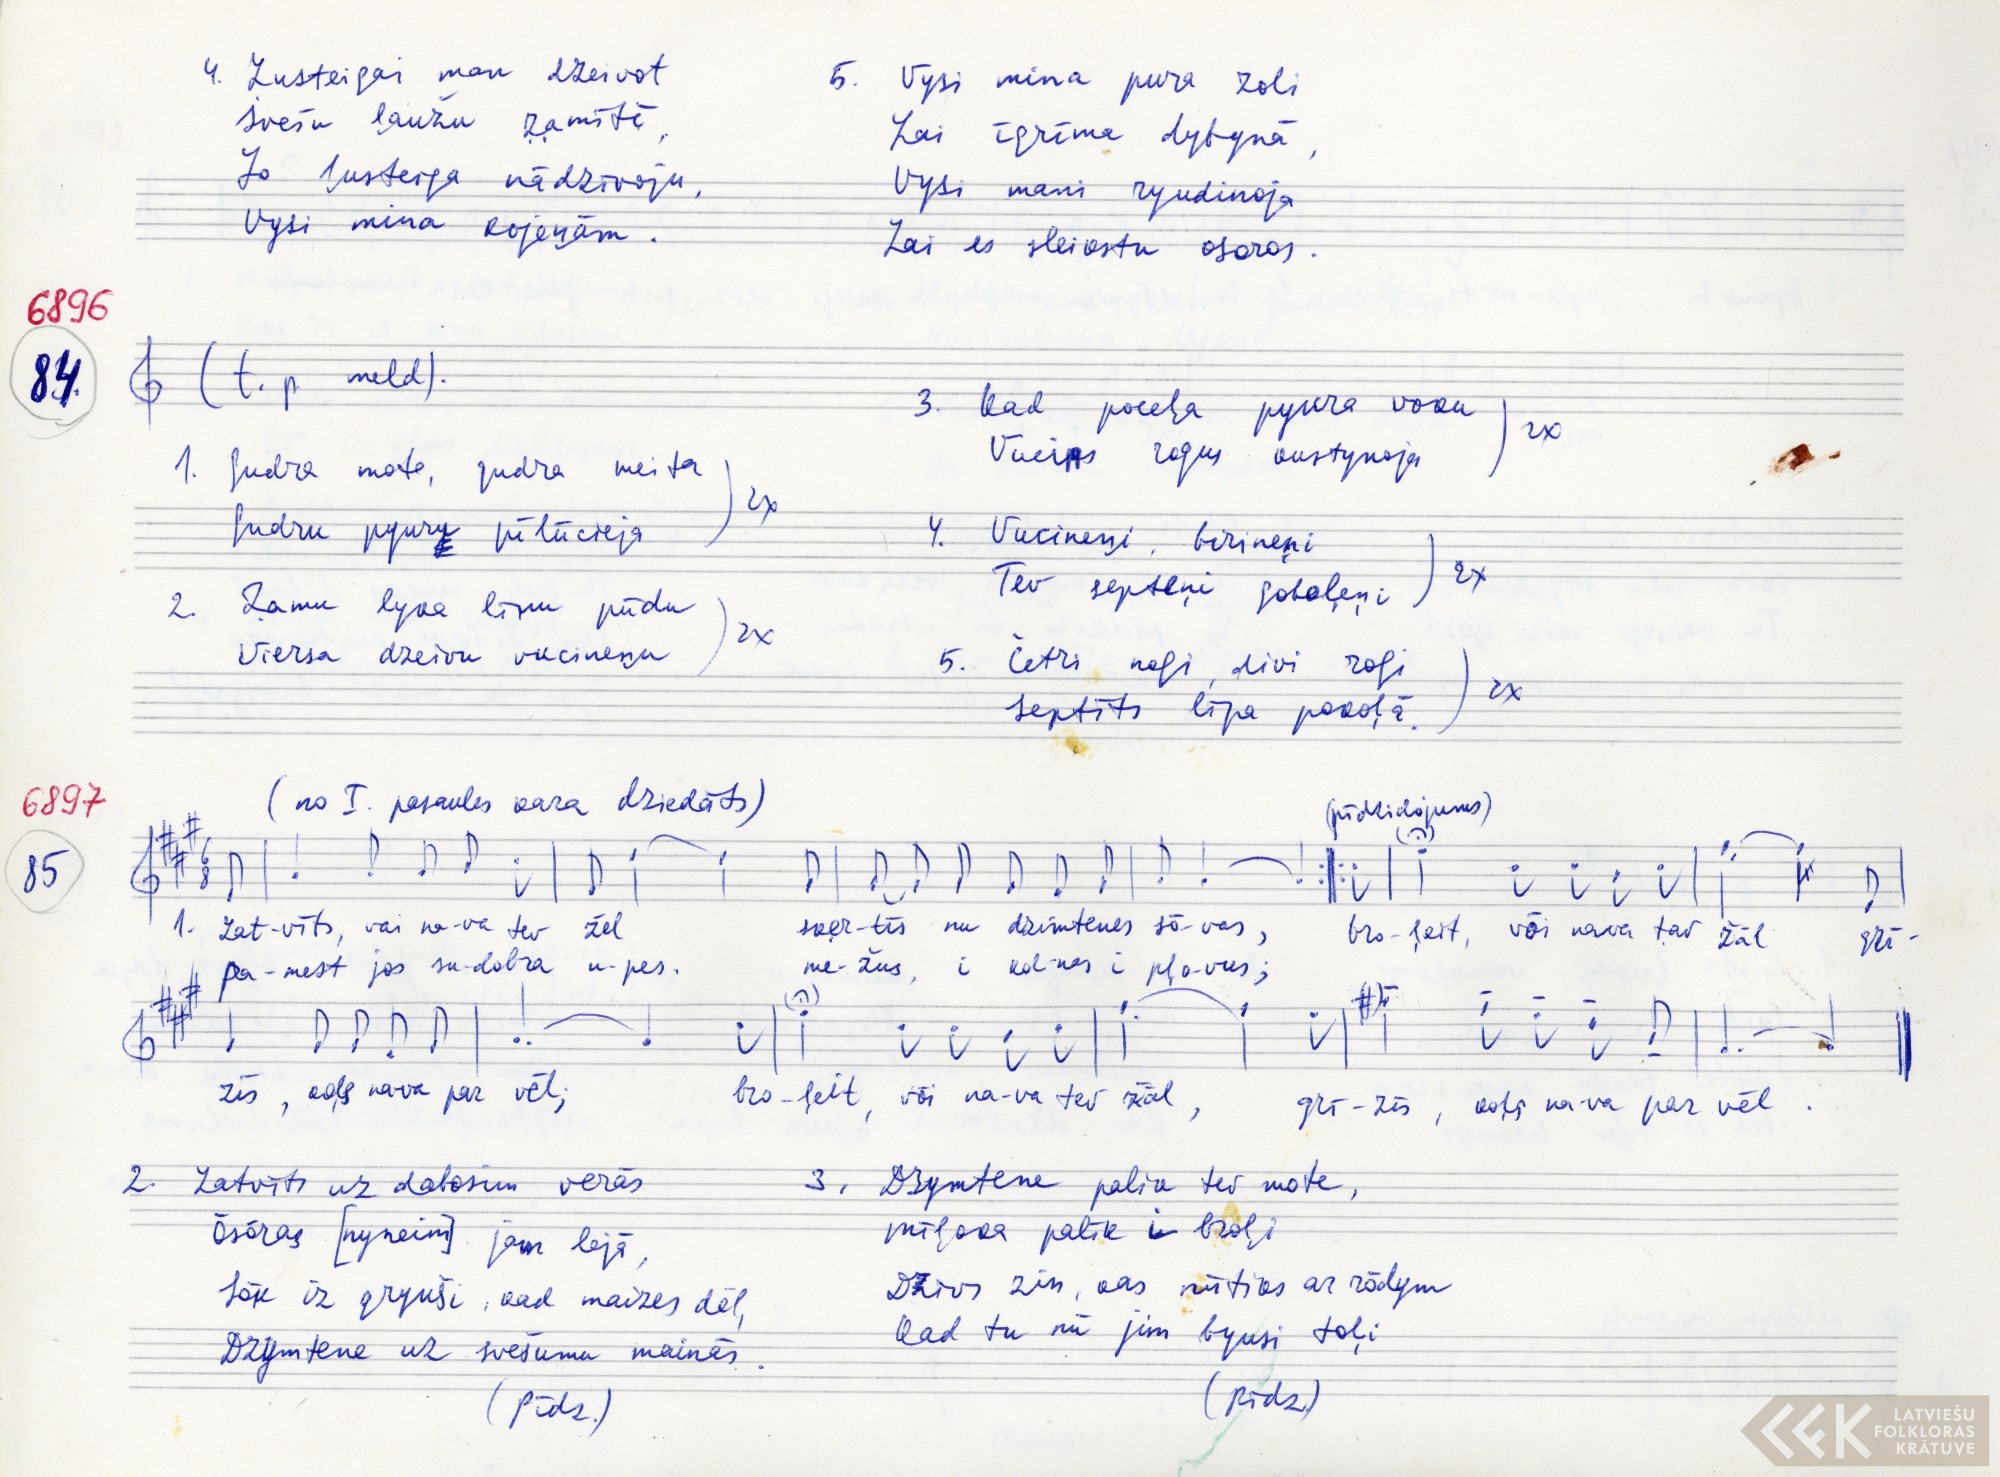 4. Lusteigai man dzeivot
svešu ļaužu zamītē,
Jo lusteiga nādzīvoju,
Vysi mina kojeņām.
5. Vysi mina pura zoli
Lai īgrīma dybynā,
Vysi mani ryudinoja
Lai es sleikstu osoros.
6896
84.
(t. p meld).
1. Gudra mote, gudra meita
Gudru pyury pīlūcieja
) 2x
2. Zamu lyka linu pūdu
Viersa dzeivu vucineņu
) 2x
3. Kad poceļa pyura voku
Vucins rogus kustynoja
) 2x
4. Vucineņi, birineņi
Tev septeņi goboleņi
) 2x
5. Četri nogi, divi rogi
Septīts līpa pokoļā.
) 2x
6897
85
(no I. pasaules kara dziedāts)
(pīdzidojums)
1. Lat-vīts, vai na-va tev žēl šķer-tīs nu dzimtenes sō-vas, bro-ļeit, vōi nava tav žāl grī-
pa-mest jos su-dobra u-pes. me-žus, i kol-nes i pļo-vus;
zīs, koļņ na-va par vēl; bro-ļeit, vōi na-va tev žāl, grī-zīs, koļņ na-va par vēl.
2. Latvīts uz dabosim verās
Ōsōras [nyneim] jam lejā,
Sōk iz gryuši, kad maizes dēl,
Dzymtene uz svešumu mainās.
(Pīdz.)
3. Dzymtene palik tev mote,
mīļoka palīk i broļi
Dzivs zin, kas nūtiks ar rōdym
Kad tu nū jim byusi toļi
(Pīdz.)
LATVIEŠU
FOLKLORAS
KRĀTUVE